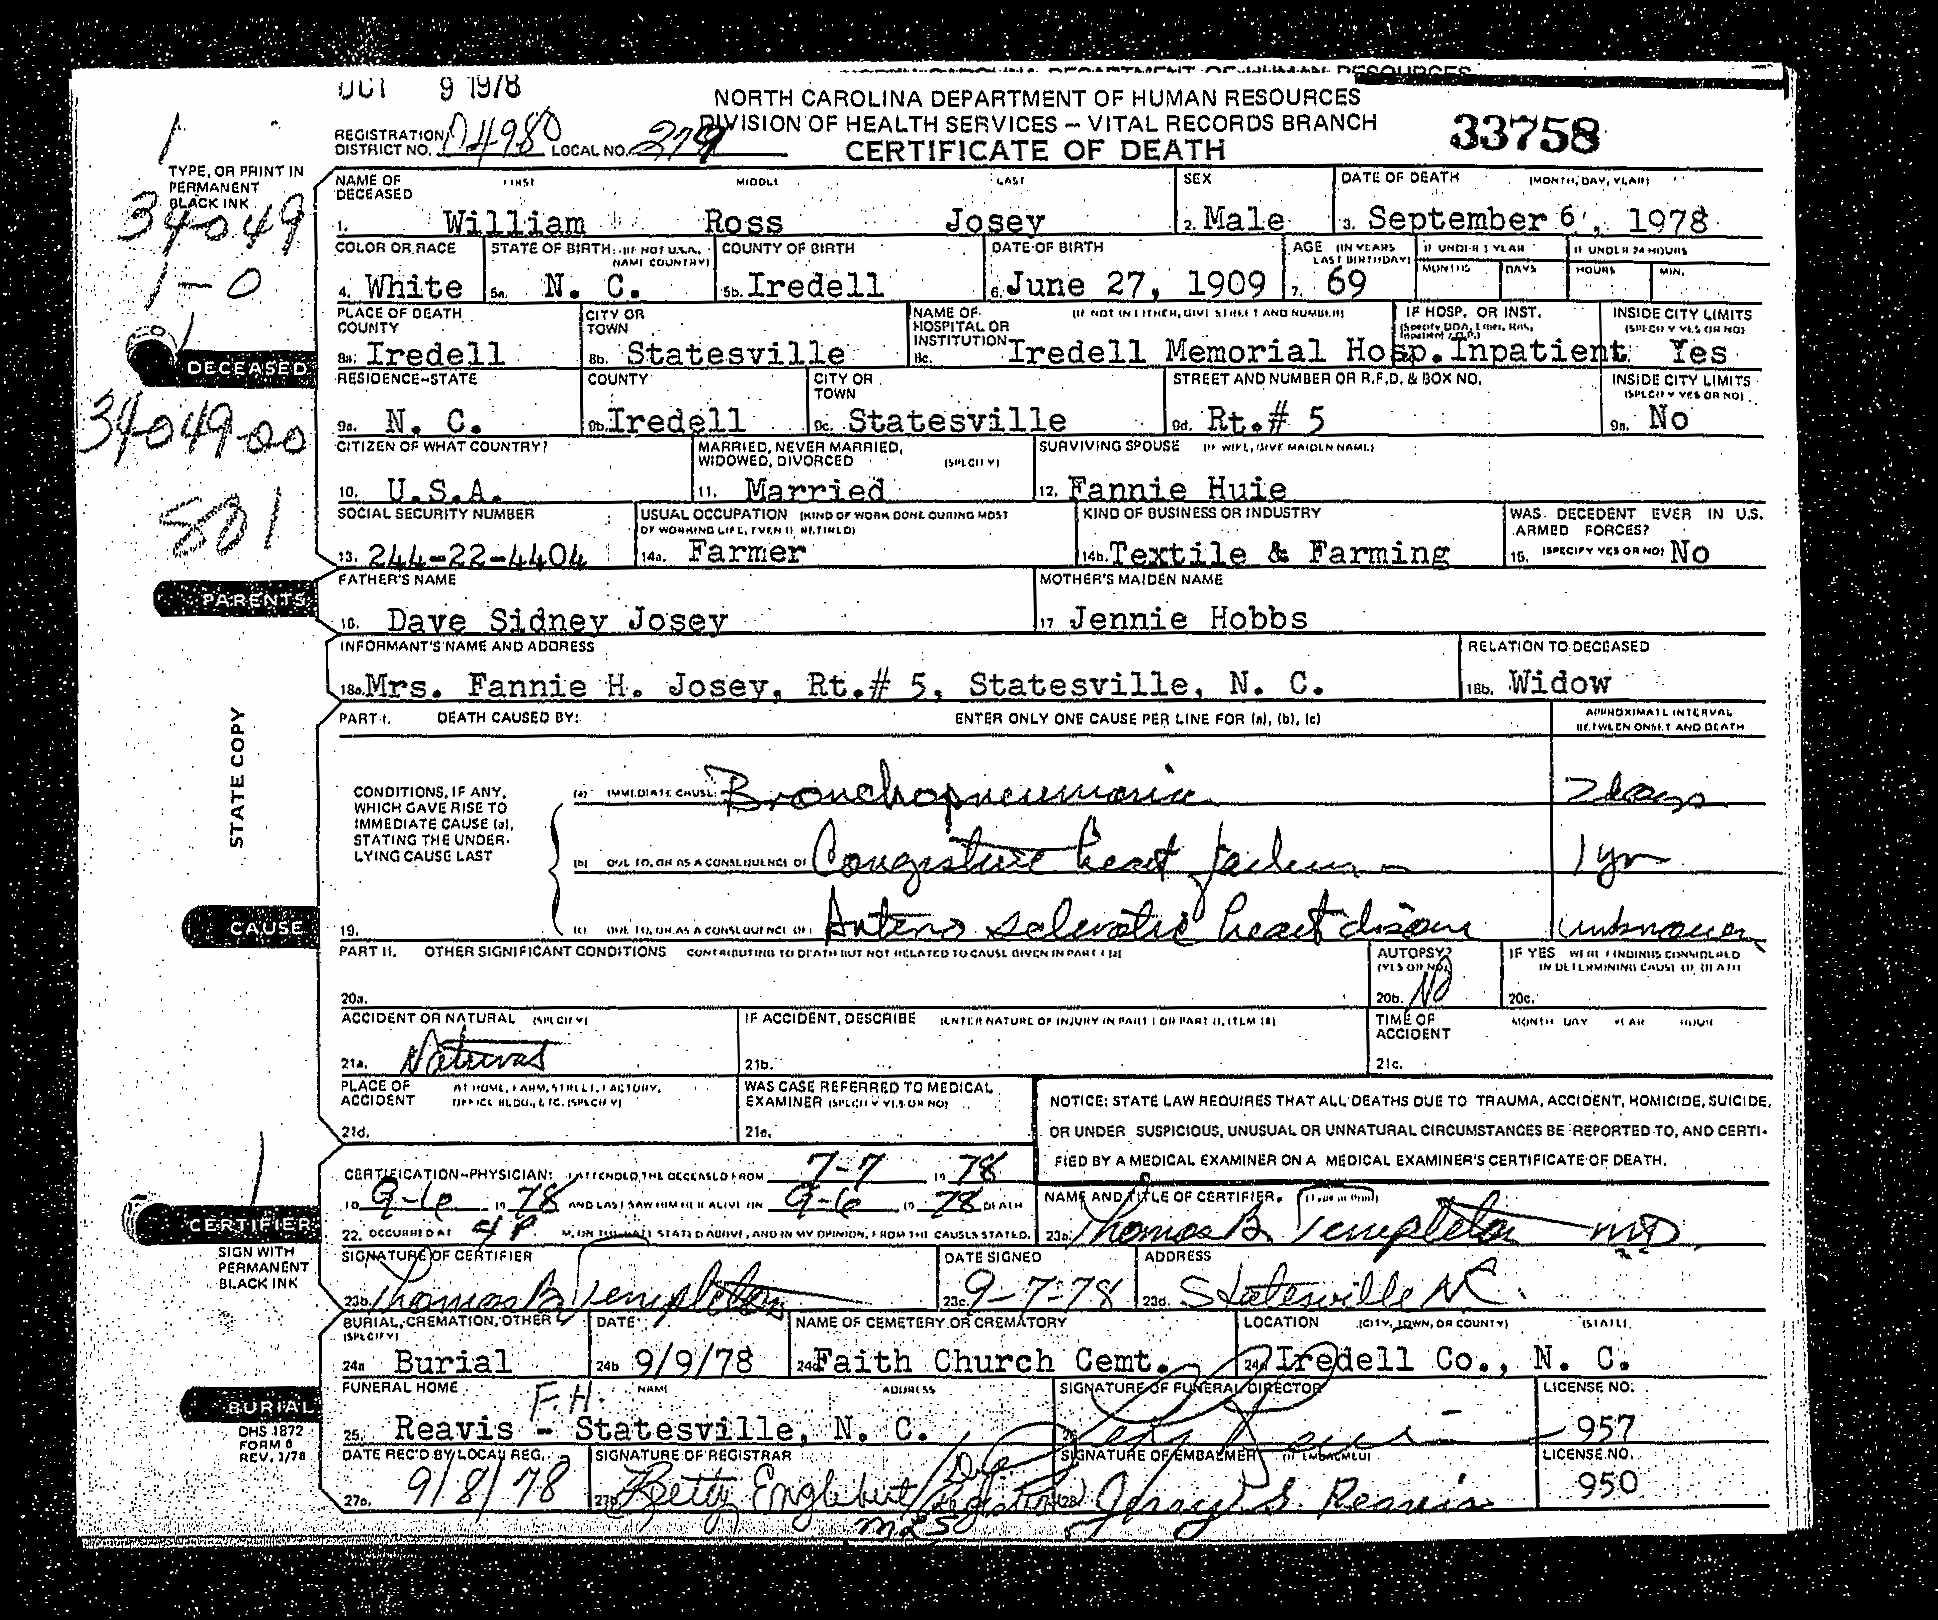 OCT 9 1978
NORTH CAROLINA DEPARTMENT OF HUMAN RESOURCES
DIVISION OF HEALTH SERVICES — VITAL RECORDS BRANCH
CERTIFICATE OF DEATH
33758
REGISTRATION DISTRICT NO. 04980 LOCAL NO. 279
TYPE, OR PRINT IN
PERMANENT
BLACK INK
34049
1-0
DECEASED
34049-00
801
NAME OF DECEASED FIRST MIDDLE LAST SEX DATE OF DEATH (MONTH, DAY, YEAR)
1. William Ross Josey 2. Male 3. September 6, 1978
COLOR OR RACE STATE OF BIRTH (IF NOT U.S.A., NAME COUNTRY) COUNTY OF BIRTH DATE OF BIRTH AGE (IN YEARS LAST BIRTHDAY) IF UNDER 1 YEAR MONTHS DAYS IF UNDER 24 HOURS HOURS MIN.
4. White 5a. N. C. 5b. Iredell 6. June 27, 1909 7. 69
PLACE OF DEATH COUNTY CITY OR TOWN NAME OF HOSPITAL OR INSTITUTION (IF NOT IN EITHER, GIVE STREET AND NUMBER) IF HOSP. OR INST. INSIDE CITY LIMITS (SPECIFY YES OR NO)
8a. Iredell 8b. Statesville 8c. Iredell Memorial Hosp. Inpatient Yes
RESIDENCE-STATE COUNTY CITY OR TOWN STREET AND NUMBER OR R.F.D. & BOX NO. INSIDE CITY LIMITS (SPECIFY YES OR NO)
9a. N. C. 9b. Iredell 9c. Statesville 9d. Rt.# 5 9e. No
CITIZEN OF WHAT COUNTRY? MARRIED, NEVER MARRIED, WIDOWED, DIVORCED (SPECIFY) SURVIVING SPOUSE (IF WIFE, GIVE MAIDEN NAME)
10. U.S.A. 11. Married 12. Fannie Huie
SOCIAL SECURITY NUMBER USUAL OCCUPATION (KIND OF WORK DONE DURING MOST OF WORKING LIFE, EVEN IF RETIRED) KIND OF BUSINESS OR INDUSTRY WAS DECEDENT EVER IN U.S. ARMED FORCES?
13. 244-22-4404 14a. Farmer 14b. Textile & Farming 15. (SPECIFY YES OR NO) No
PARENTS
FATHER'S NAME MOTHER'S MAIDEN NAME
16. Dave Sidney Josey 17 Jennie Hobbs
INFORMANT'S NAME AND ADDRESS RELATION TO DECEASED
18a. Mrs. Fannie H. Josey, Rt.# 5, Statesville, N. C. 18b. Widow
STATE COPY
CAUSE
PART I. DEATH CAUSED BY: ENTER ONLY ONE CAUSE PER LINE FOR (a), (b), (c) APPROXIMATE INTERVAL BETWEEN ONSET AND DEATH
CONDITIONS, IF ANY,
WHICH GAVE RISE TO
IMMEDIATE CAUSE (a),
STATING THE UNDER-
LYING CAUSE LAST
(a) IMMEDIATE CAUSE: Bronchopneumonia 2 days
(b) DUE TO, OR AS A CONSEQUENCE OF Congestive heart failure 1 yr
19. (c) DUE TO, OR AS A CONSEQUENCE OF: Arterio sclerotic heart disease unknown
PART II. OTHER SIGNIFICANT CONDITIONS CONTRIBUTING TO DEATH BUT NOT RELATED TO CAUSE GIVEN IN PART I (a) AUTOPSY? (YES OR NO) IF YES WERE FINDINGS CONSIDERED IN DETERMINING CAUSE OF DEATH
20a. 20b. No 20c.
ACCIDENT OR NATURAL (SPECIFY) IF ACCIDENT, DESCRIBE (ENTER NATURE OF INJURY IN PART I OR PART II, ITEM 18) TIME OF ACCIDENT MONTH DAY YEAR HOUR
21a. Natural 21b. 21c.
PLACE OF ACCIDENT AT HOME, FARM, STREET, FACTORY, OFFICE BLDG., ETC. (SPECIFY) WAS CASE REFERRED TO MEDICAL EXAMINER (SPECIFY YES OR NO)
21d. 21e.
NOTICE: STATE LAW REQUIRES THAT ALL DEATHS DUE TO TRAUMA, ACCIDENT, HOMICIDE, SUICIDE,
OR UNDER SUSPICIOUS, UNUSUAL OR UNNATURAL CIRCUMSTANCES BE REPORTED TO, AND CERTI-
FIED BY A MEDICAL EXAMINER ON A MEDICAL EXAMINER'S CERTIFICATE OF DEATH.
CERTIFIER
SIGN WITH
PERMANENT
BLACK INK
CERTIFICATION-PHYSICIAN: I ATTENDED THE DECEASED FROM 7-7 19 78
TO 9-6 19 78 AND LAST SAW HIM/HER ALIVE ON 9-6 19 78 DEATH
22. OCCURRED AT 4 P. M, ON THE DATE STATED ABOVE, AND IN MY OPINION, FROM THE CAUSES STATED.
NAME AND TITLE OF CERTIFIER. (Type or Print)
23a. Thomas B Templeton MD.
SIGNATURE OF CERTIFIER DATE SIGNED ADDRESS
23b. Thomas B Templeton 23c. 9-7-78 23d. Statesville NC.
BURIAL
DHS 1872
FORM 8
REV. 1/78
BURIAL, CREMATION, OTHER (SPECIFY) DATE NAME OF CEMETERY OR CREMATORY LOCATION (CITY, TOWN, OR COUNTY) (STATE)
24a Burial 24b 9/9/78 24c Faith Church Cemt. 24d Iredell Co., N. C.
FUNERAL HOME NAME ADDRESS SIGNATURE OF FUNERAL DIRECTOR LICENSE NO.
25. Reavis F.H. - Statesville, N. C. 957
DATE REC'D BY LOCAL REG. SIGNATURE OF REGISTRAR SIGNATURE OF EMBALMER (IF EMBALMED) LICENSE NO.
27a. 9/8/78 27b. Betty Englebert 28. Jerry S. Reavis 950